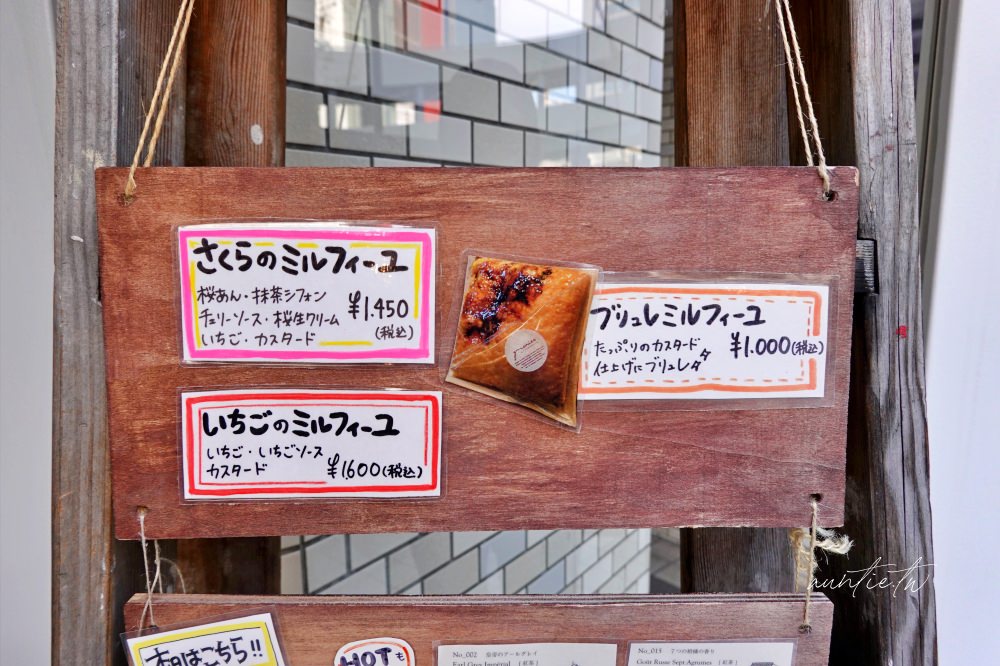 さくらのミルフィーユ
桜あん・抹茶シフォン
チェリーソース・桜生クリーム
いちご・カスタード
¥1.450
(税込)
ブリュレミルフィーユ
たっぷりのカスタード
仕上げにブリュレ
¥1.000(税込)
いちごのミルフィーユ
いちご・いちごソース
カスタード
¥1.600(税込)
本日はこちら!!
HOTも
No_002 皇帝のアールグレイ
Earl Grey Impérial (紅茶)
No_015 7つの柑橘の香り
Goût Russe Sept Agrumes (紅茶)
auntie.tw